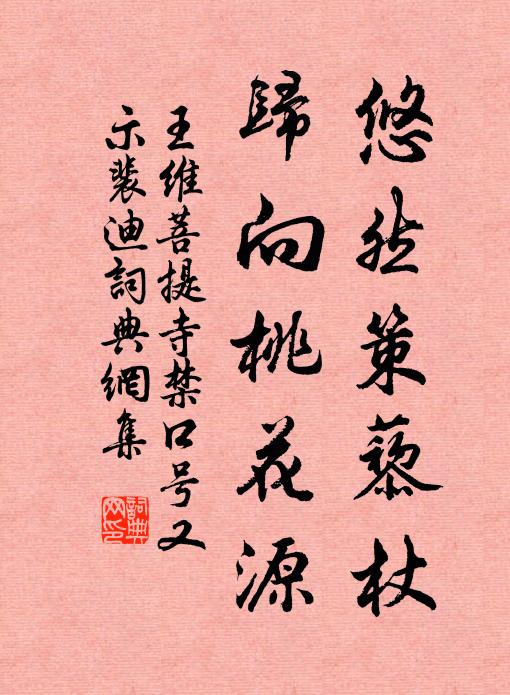 悠然策藜杖
歸向桃花源
王維菩提寺禁口号又
示裴迪詞典網集
詞典网印